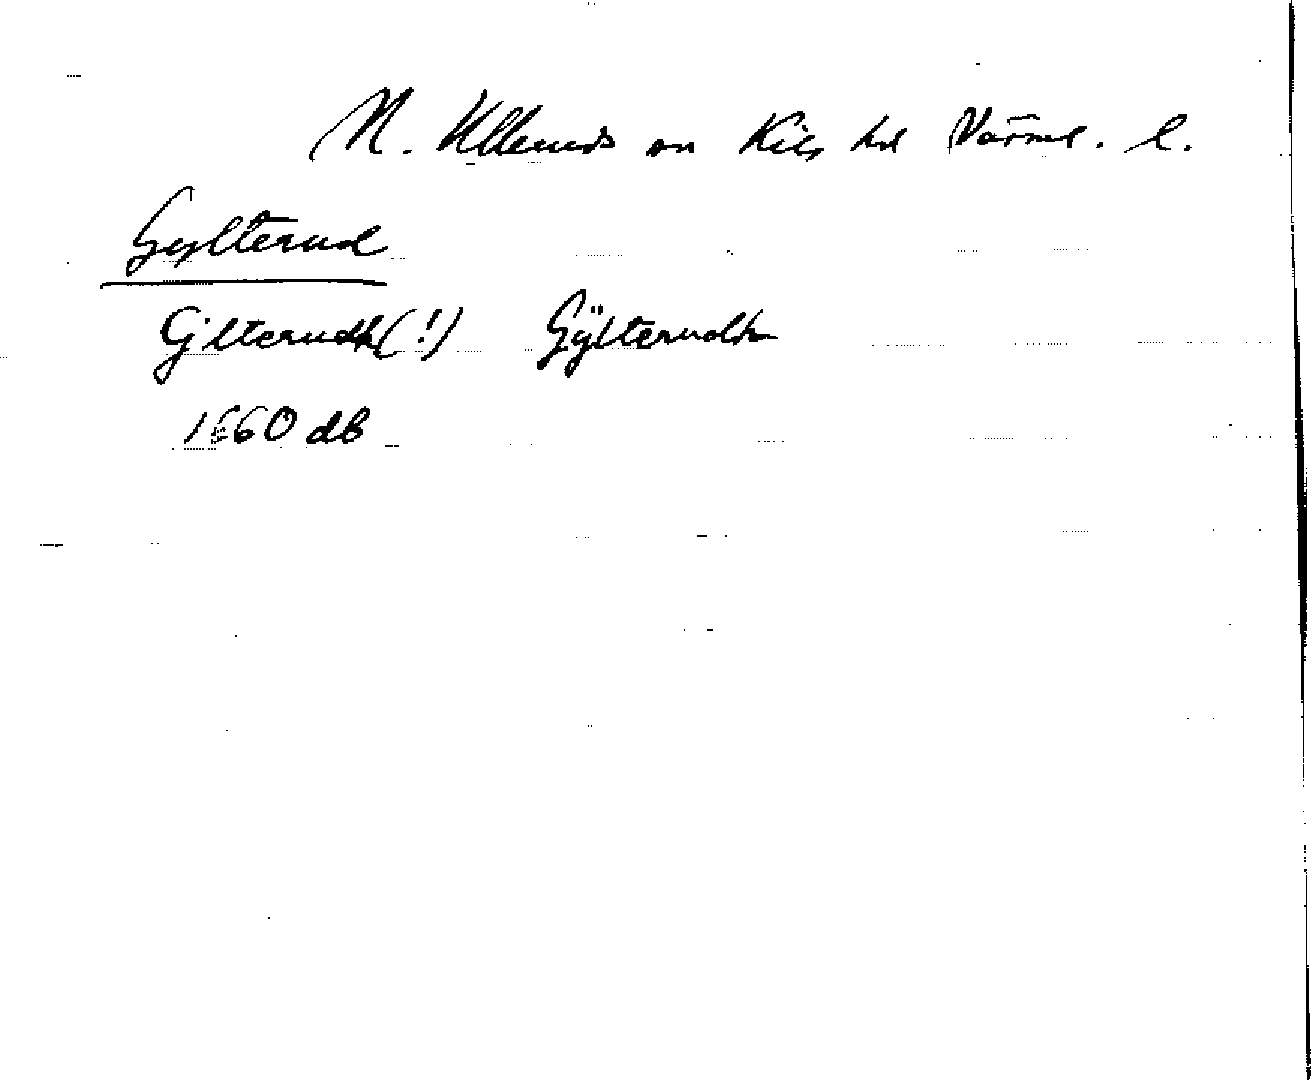 N. Ulleruds sn Kils hd Värml. l.
Gylterud
Gjlterudh(!) Gÿlterudh
1560 db